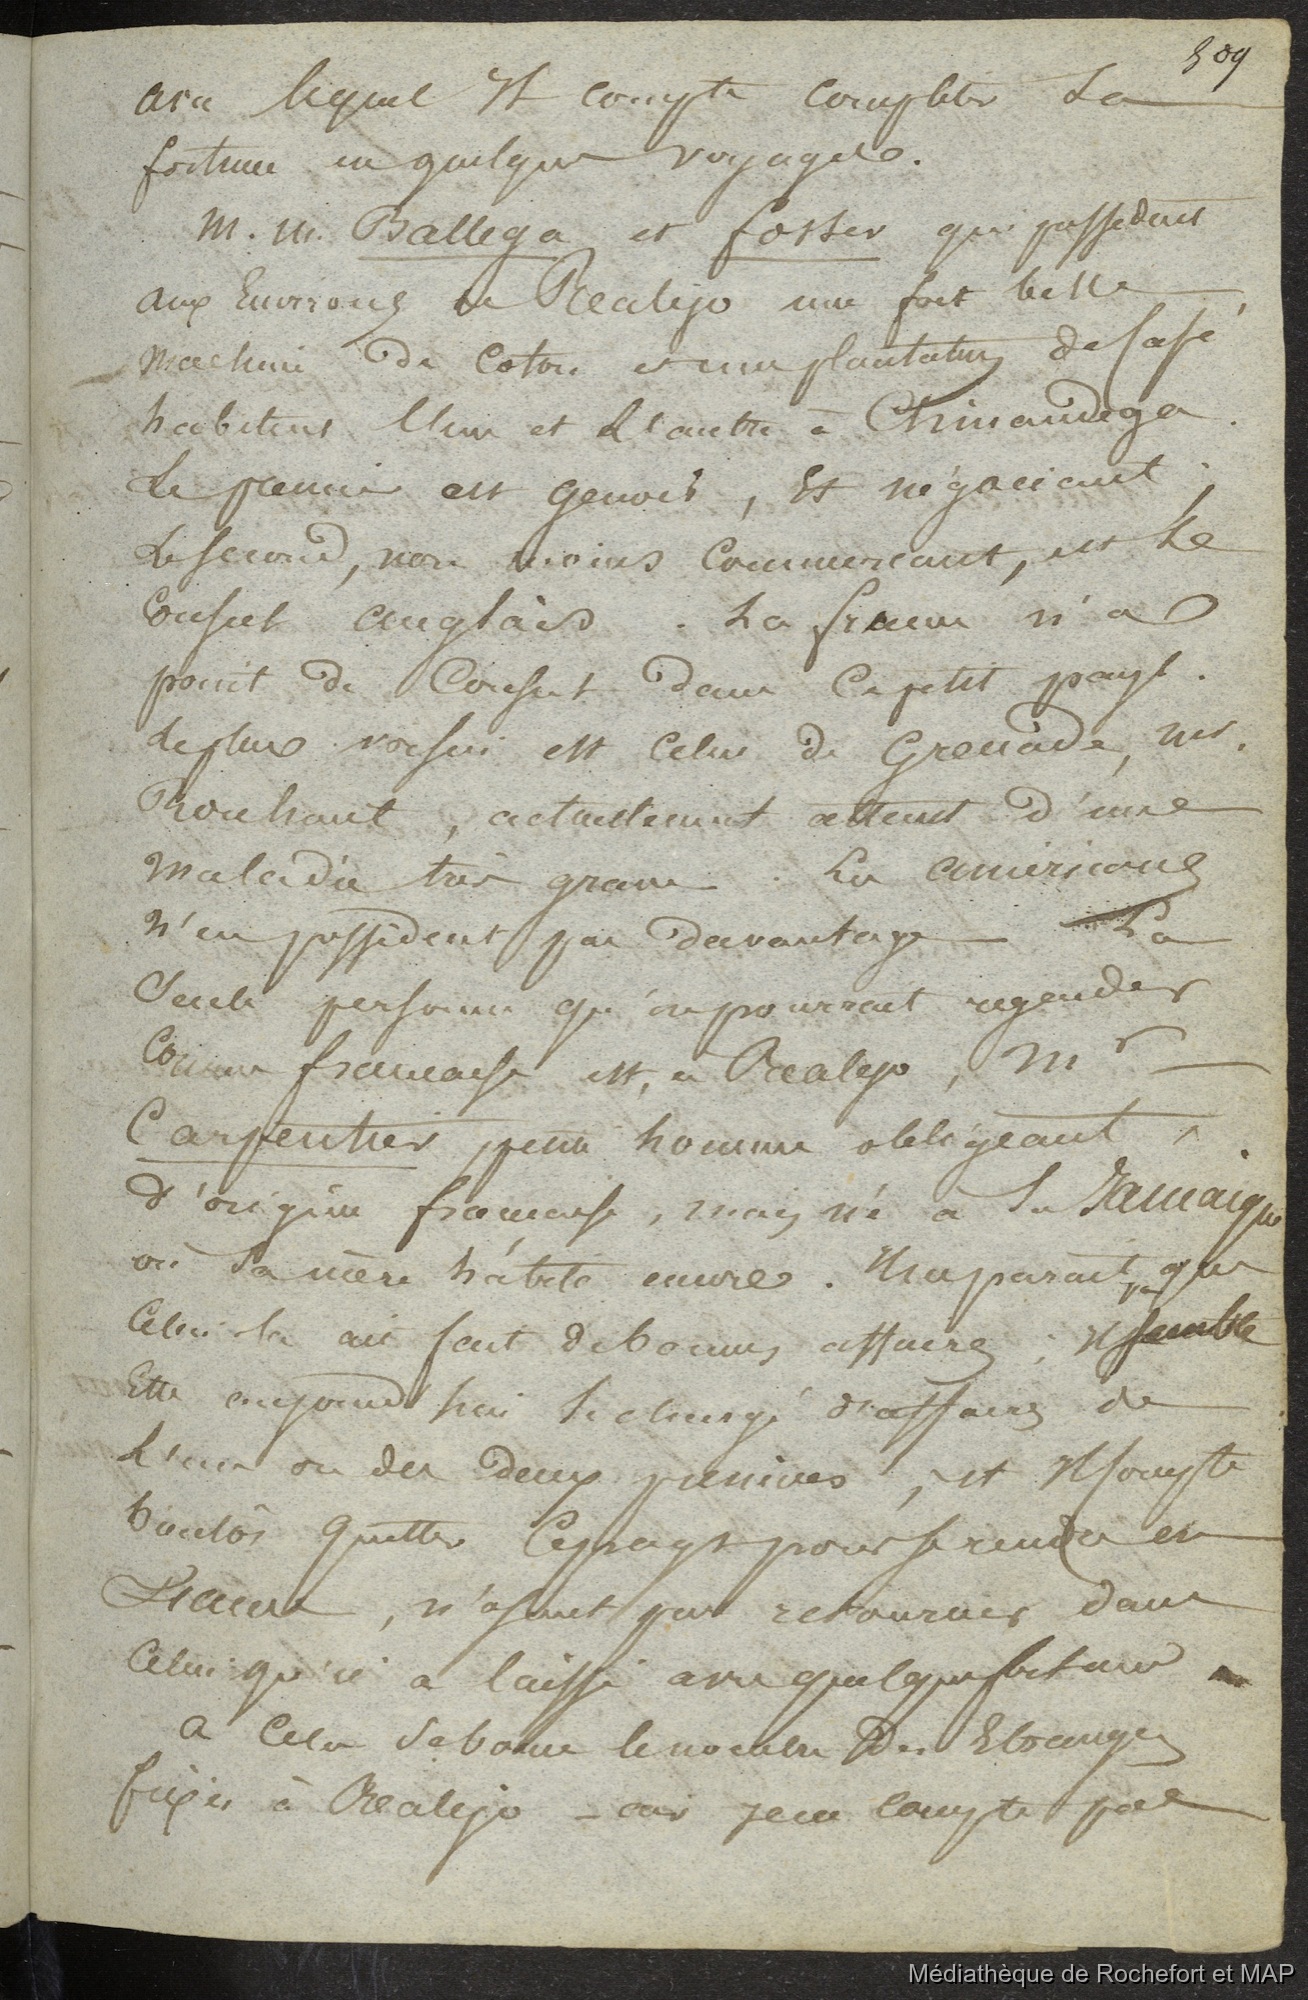 509
avec lequel Il compte completer Sa
fortune en quelques voyages.
M. M. Ballega et fosser qui possedent
aux Environs de Realejo une fort belle
Machine de Coton et une plantation de Café,
habitent l'Un et L'autre à Chinandega.
Le premier est genois, Et négociant ;
Le Second, non moins commercant, est Le
Consul anglais. La france n'a
point de Consul dans Ce petit pays.
Le plus voisin est Celui de Grenade, Mr.
Rouhaut, actuellement atteint d'une
Maladie très grave. Les américains
n'en possedent pas davantage — La
Seule personne qu'on pourrait regarder
Comme francaise est, à Realejo, Mr
Carpentier, petit homme obligeant,
d'origine francaise, mais né à La Jamaique
où Sa mère habite encore. Il ne parait pas que
Celui-là ait fait de bonnes affaires ; Il semble
Etre aujourd'hui le chargé d'affaires de
L'un ou des deux premiers, et Il compte
bientôt quitter Ce pays pour se rendre en
France, n'osant pas retourner dans
Celui qu'il a laissé avec quelque fortune.
a Cela Se borne le nombre Des Etrangers
fixés à Realejo — car je ne compte pas
Médiathèque de Rochefort et MAP